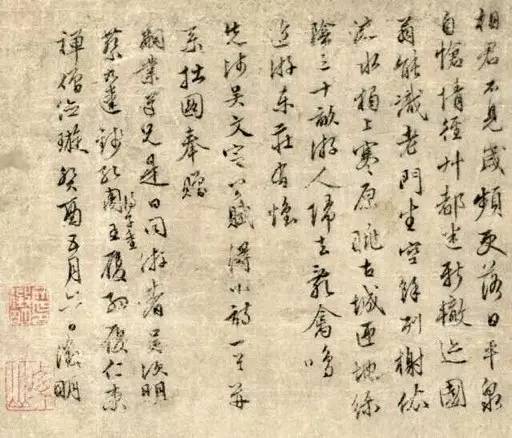 相君不見歲頻更落日平泉
自愴情徑艸都迷新轍迹園
翁能識老門生空餘列榭依
流水獨上寒原眺古城匝地綠
陰三十畝游人歸去亂禽鳴
近游東莊有懷
先師吳文定公賦得小詩一首并
系拙圖奉贈
嗣業尊兄是日同游者吳次明
蔡九逵錢孔周湯子重王履約履仁東
禪僧璇癸酉五月六日徵明